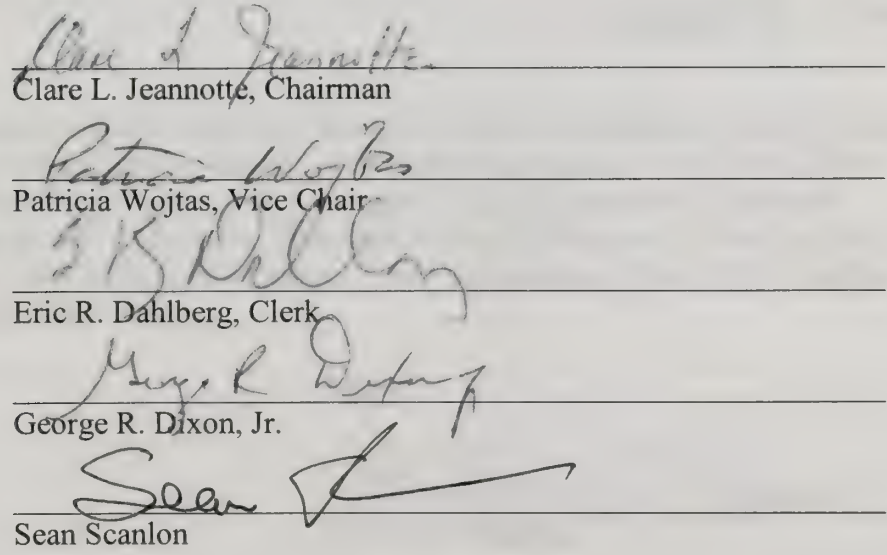 Clare L Jeannotte
Clare L. Jeannotte, Chairman
Patricia Wojtas
Patricia Wojtas, Vice Chair
E R Dahlberg
Eric R. Dahlberg, Clerk
George R Dixon Jr
George R. Dixon, Jr.
Sean
Sean Scanlon